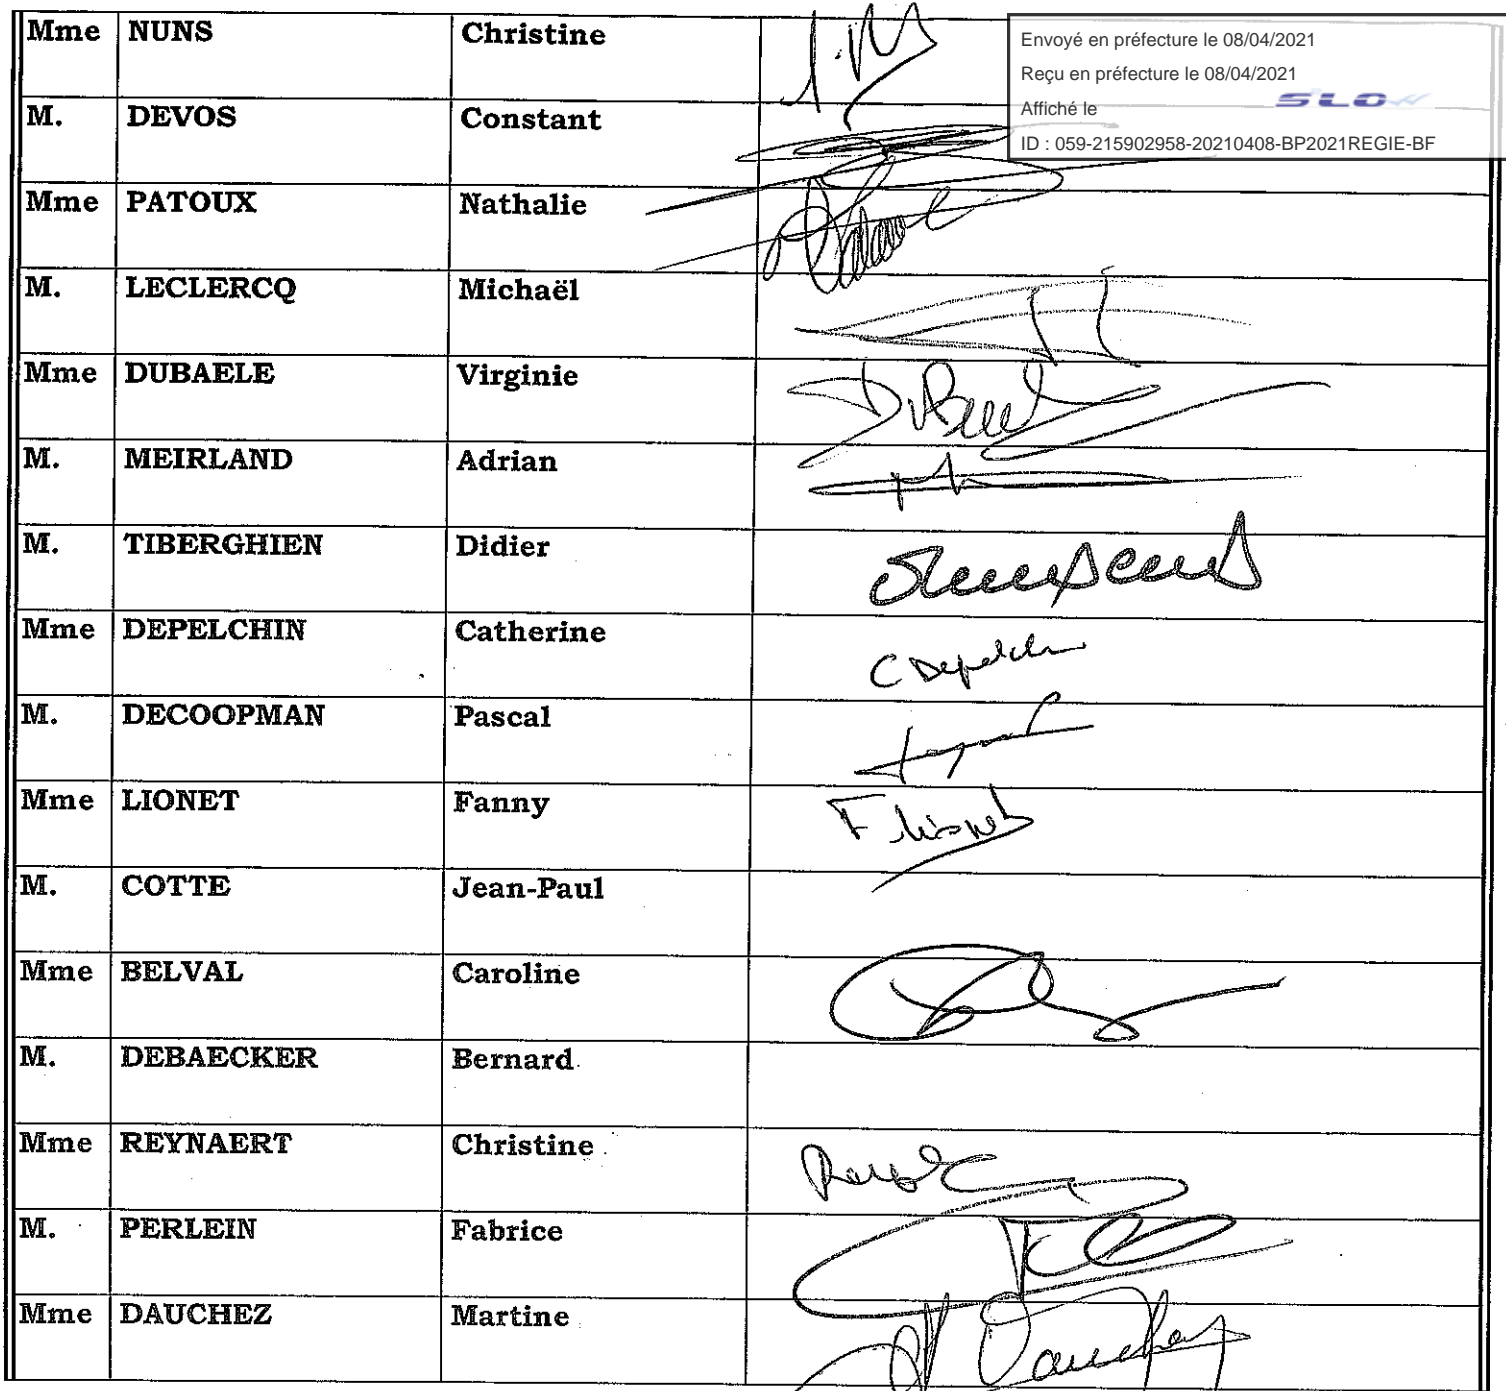 Mme NUNS Christine
Envoyé en préfecture le 08/04/2021
Reçu en préfecture le 08/04/2021
Affiché le SLO
ID : 059-215902958-20210408-BP2021REGIE-BF
M. DEVOS Constant
Mme PATOUX Nathalie
M. LECLERCQ Michaël
Mme DUBAELE Virginie
M. MEIRLAND Adrian
M. TIBERGHIEN Didier
Mme DEPELCHIN Catherine C Depelchin
M. DECOOPMAN Pascal
Mme LIONET Fanny F Lionet
M. COTTE Jean-Paul
Mme BELVAL Caroline
M. DEBAECKER Bernard
Mme REYNAERT Christine
M. PERLEIN Fabrice
Mme DAUCHEZ Martine